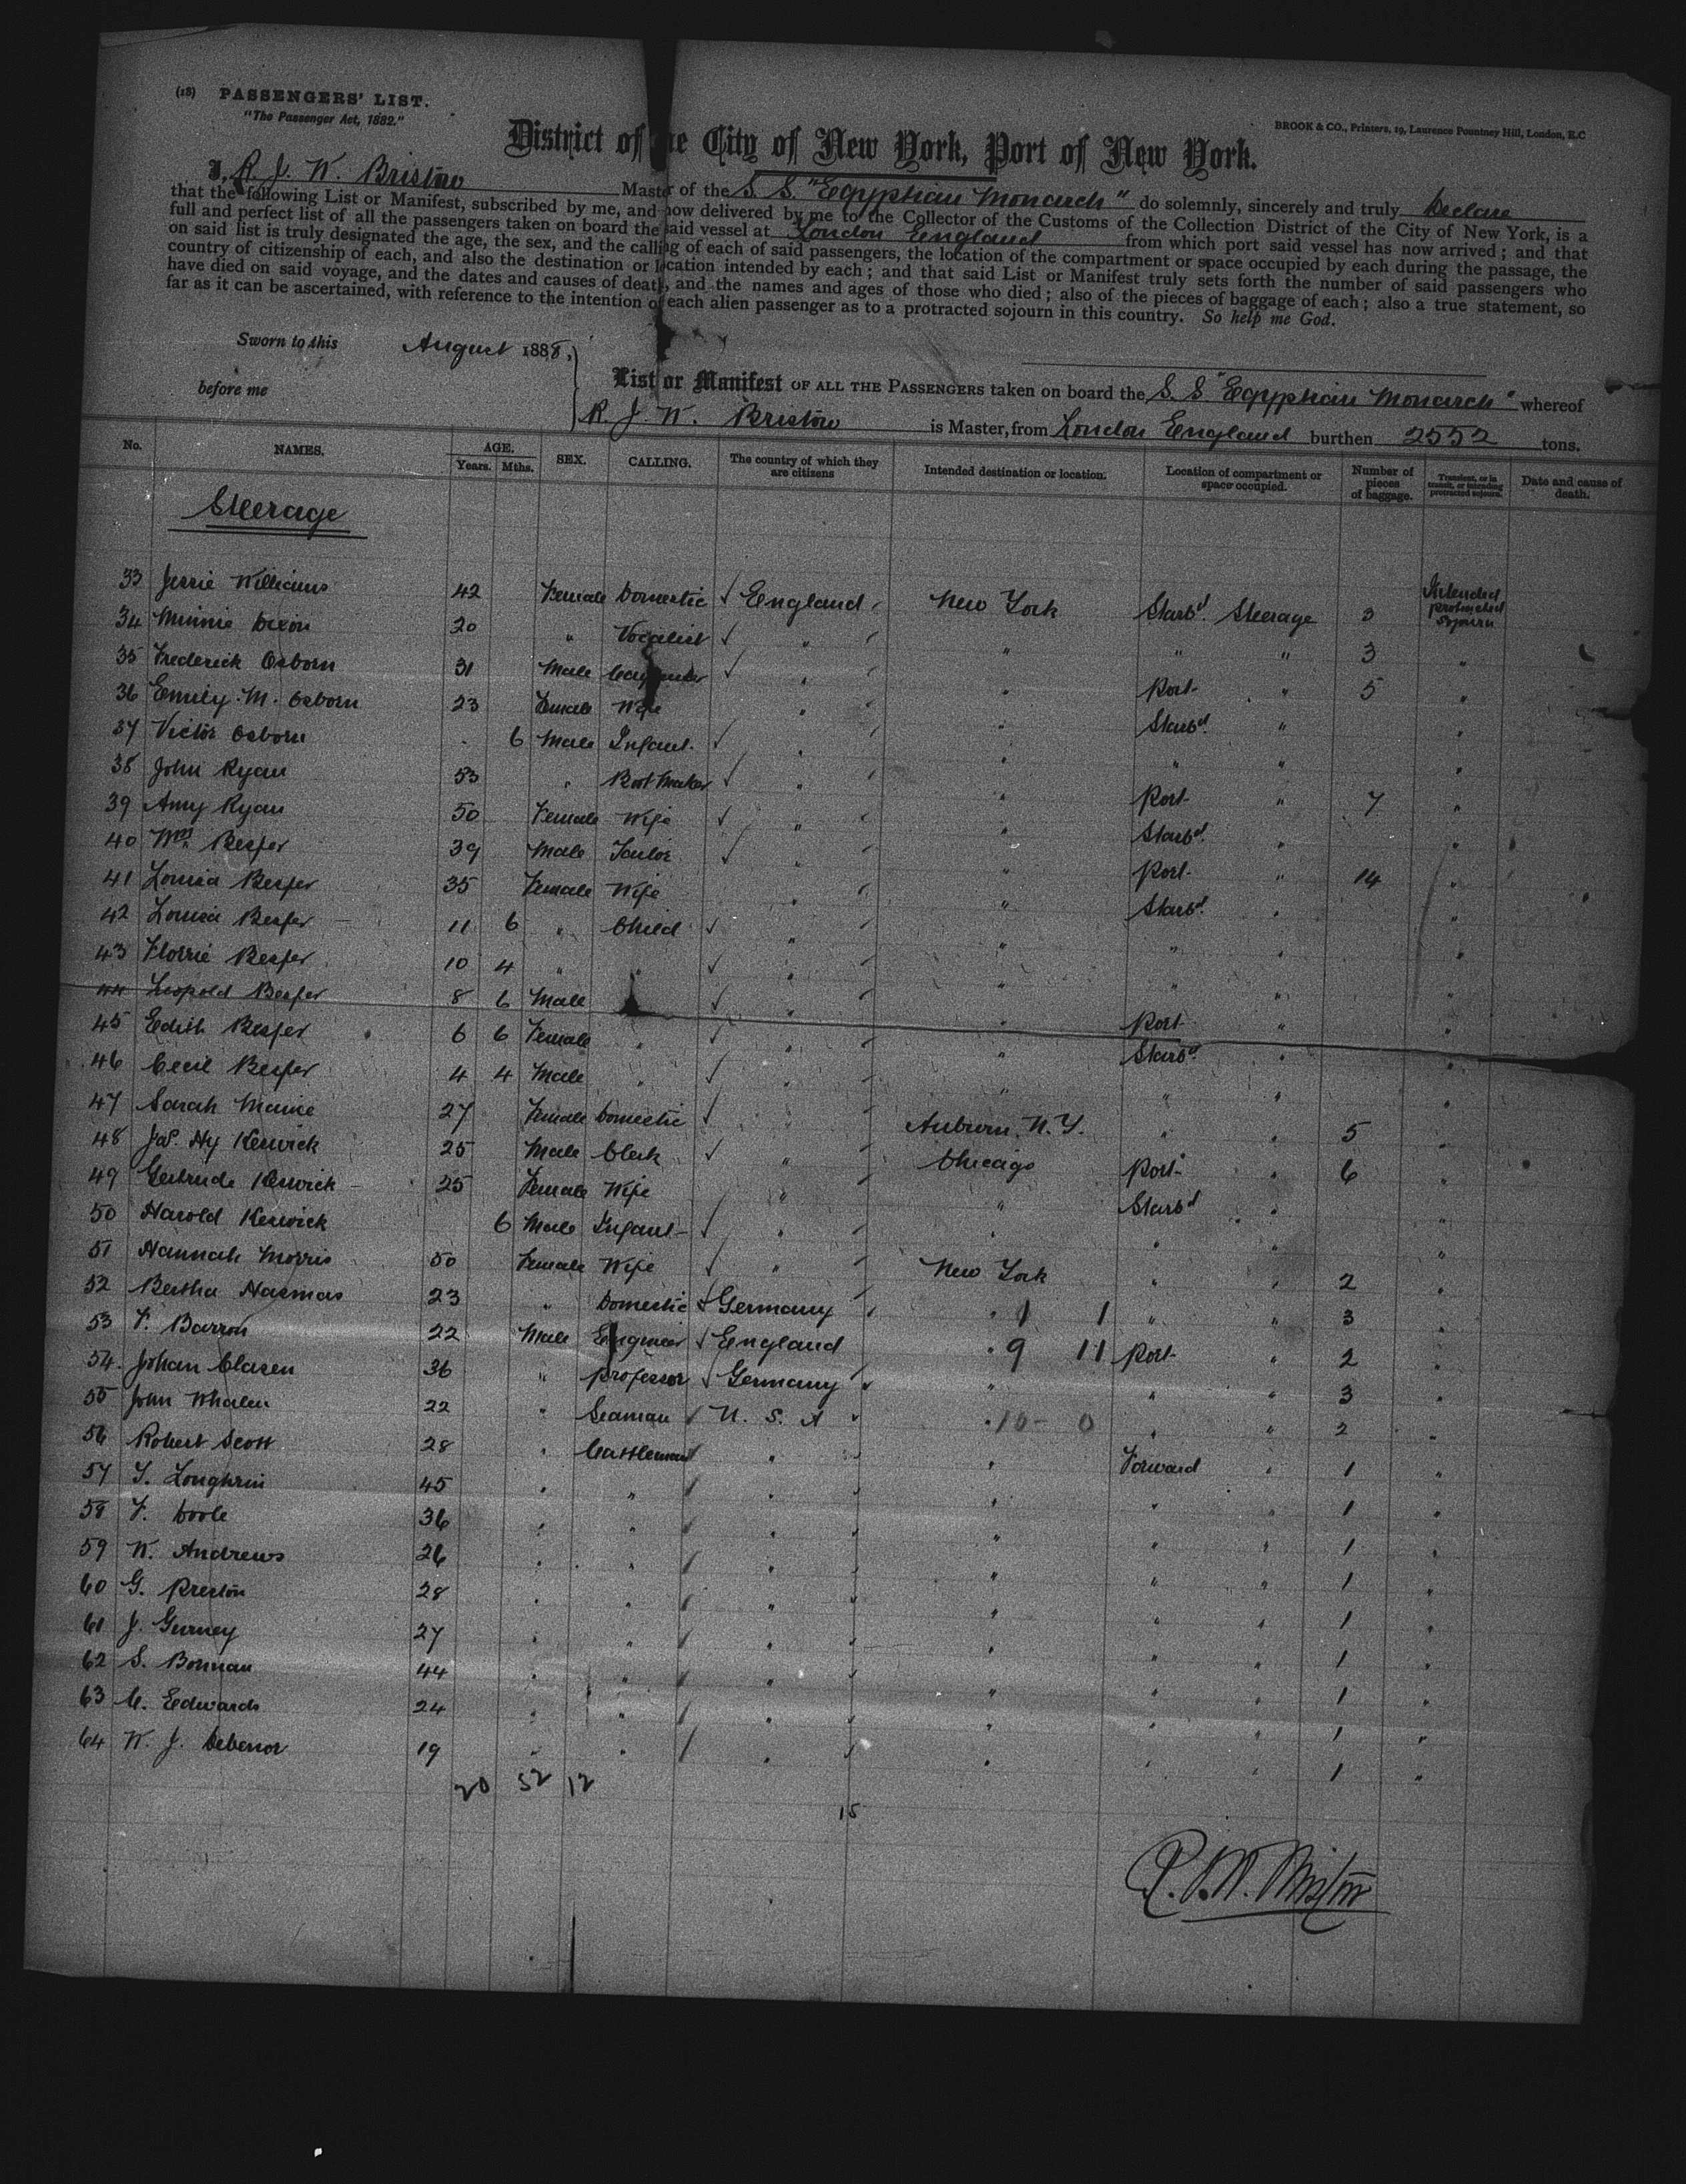 (18) PASSENGERS' LIST.
"The Passenger Act, 1882."
BROOK & CO., Printers, 19, Laurence Pountney Hill, London, E.C
District of the City of New York, Port of New York.
I, R. J. W. Bristow Master of the S. S. "Egyptian Monarch" do solemnly, sincerely and truly Declare
that the following List or Manifest, subscribed by me, and now delivered by me to the Collector of the Customs of the Collection District of the City of New York, is a
full and perfect list of all the passengers taken on board the said vessel at London England from which port said vessel has now arrived; and that
on said list is truly designated the age, the sex, and the calling of each of said passengers, the location of the compartment or space occupied by each during the passage, the
country of citizenship of each, and also the destination or location intended by each; and that said List or Manifest truly sets forth the number of said passengers who
have died on said voyage, and the dates and causes of death, and the names and ages of those who died; also of the pieces of baggage of each; also a true statement, so
far as it can be ascertained, with reference to the intention of each alien passenger as to a protracted sojourn in this country. So help me God.
Sworn to this August 1888,
before me
List or Manifest OF ALL THE PASSENGERS taken on board the S. S. "Egyptian Monarch" whereof
R. J. W. Bristow is Master, from London England burthen 2552 tons.
No. NAMES. AGE. Years. Mths. SEX. CALLING. The country of which they are citizens Intended destination or location. Location of compartment or space occupied. Number of pieces of baggage. Transient, or in transit, or intending protracted sojourn. Date and cause of death.
Steerage
33 Jessie Williams 42 Female Domestic England New York Starbd. Steerage 3 Intended protracted Sojourn
34 Minnie Dixon 20 " Vocalist " " " " 3 "
35 Frederick Osborn 31 Male Carpenter " " Port " 5 "
36 Emily M. Osborn 23 Female Wife " " Starbd. " "
37 Victor Osborn 6 Male Infant " " " " "
38 John Ryan 53 " Boot Maker " " Port " 7 "
39 Amy Ryan 50 Female Wife " " Starbd. " "
40 Wm. Besfer 39 Male Tailor " " Port " 14 "
41 Louisa Besfer 35 Female Wife " " Starbd. " "
42 Louisa Besfer 11 6 " Child " " " " "
43 Florrie Besfer 10 4 " " " " " " "
44 Leopold Besfer 8 6 Male " " Port " "
45 Edith Besfer 6 6 Female " " " Starbd. " "
46 Cecil Besfer 4 4 Male " " " " " "
47 Sarah Maine 27 Female Domestic " Auburn, N.Y. " " 5 "
48 Jas. Hy Keswick 25 Male Clerk " Chicago Port " 6 "
49 Gertrude Keswick 25 Female Wife " " Starbd " "
50 Harold Keswick 6 Male Infant " " " " "
51 Hannah Morris 50 Female Wife " New York " " 2 "
52 Bertha Hasmas 23 " Domestic Germany " 1 1 " " 3 "
53 F. Barron 22 Male Engineer England " 9 11 Port " 2 "
54. Johan Clasen 36 " Professor Germany " " " 3 "
55 John Whalen 22 " Seaman U. S. A " 10 - 0 " " 2 "
56 Robert Scott 28 " Cattleman " " Forward " 1 "
57 T. Loughrin 45 " " " " " " 1 "
58 F. Doole 36 " " " " " " 1 "
59 W. Andrews 26 " " " " " " 1 "
60 G. Preston 28 " " " " " " 1 "
61 J. Gurney 27 " " " " " " 1 "
62 S. Bonnan 44 " " " " " " 1 "
63 C. Edwards 24 " " " " " " 1 "
64 W. J. Debenor 19 " " " " " " 1 "
20 52 12
15
R. J. W. Bristow